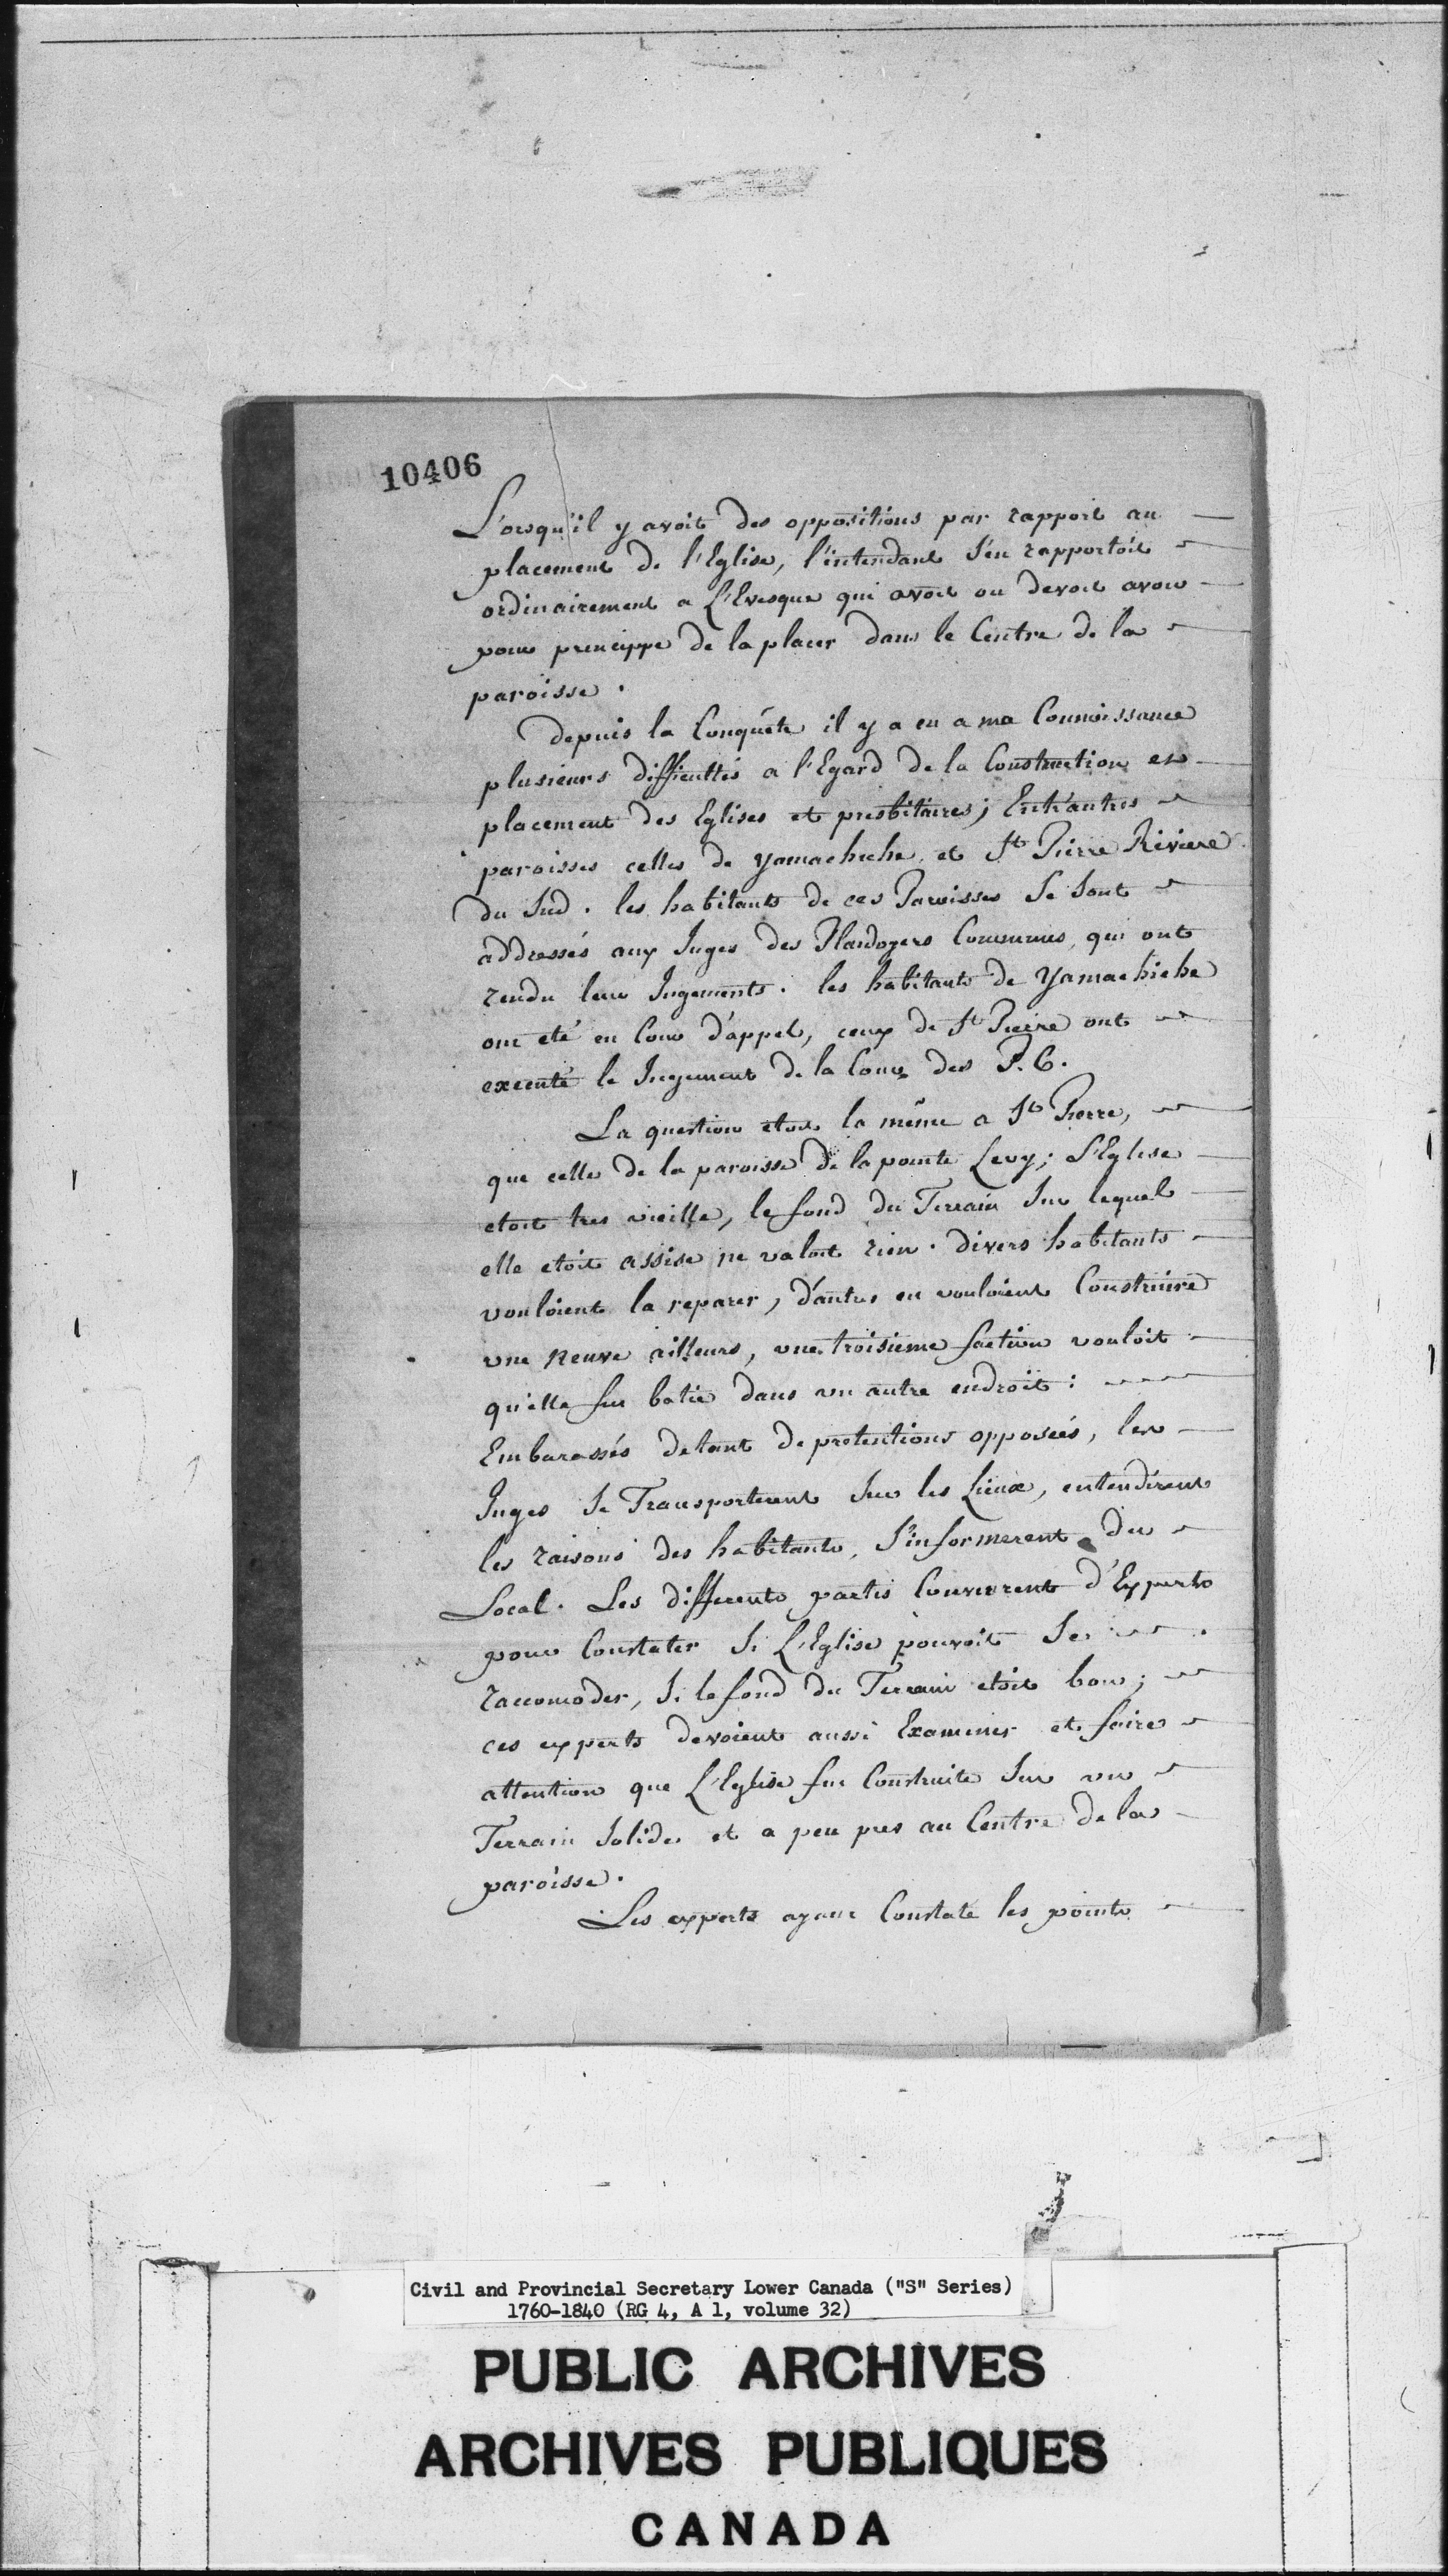 10406
Lorsqu'il y avoit des oppositions par rapport au
placement de l'Eglise, l'intendant s'en rapportoit
ordinairement a L'Evesque qui avoit ou devoit avoir
pour princippe de la placer dans le Centre de la
paroisse.
depuis la Conquête il y a eu a ma Connoissance
plusieurs difficultés a l'Egard de la Construction et
placement des Eglises et presbitaires; Entr'autres
paroisses celles de yamachiche et St Pierre Riviere
du Sud. les habitants de ces Paroisses se sont
addressés aux Juges des Plaidoyers Communs, qui ont
rendu leur Jugements. les habitants de yamachiche
ont eté en Cour d'appel, ceux de St Pierre ont
executé le Jugement de la Cour des P. C.
La question etoit la même a St Pierre,
que celle de la paroisse de la pointe Levy; L'Eglise
etoit tres vieille, le fond du Terrain sur lequel
elle etoit assise ne valoit rien. divers habitants
vouloient la reparer, d'autres en vouloient Construire
une neuve ailleurs, une troisieme faction vouloit
qu'elle fut batie dans un autre endroit:
Embarassés de tant de pretentions opposées, les
Juges se Transporterent sur les Lieux, entendirent
les raisons des habitants, s'informerent du
Local. Les differents partis Convinrent d'Experts
pour Constater si L'Eglise pouvoit se
raccomoder, si le fond du Terrain etoit bon;
ces experts devoient aussi Examiner et faire
attention que L'Eglise fut Construite sur un
Terrain solide et a peu pres au Centre de la
paroisse.
Les experts ayant Constaté les points
Civil and Provincial Secretary Lower Canada ("S" Series)
1760-1840 (RG 4, A 1, volume 32)
PUBLIC ARCHIVES
ARCHIVES PUBLIQUES
CANADA